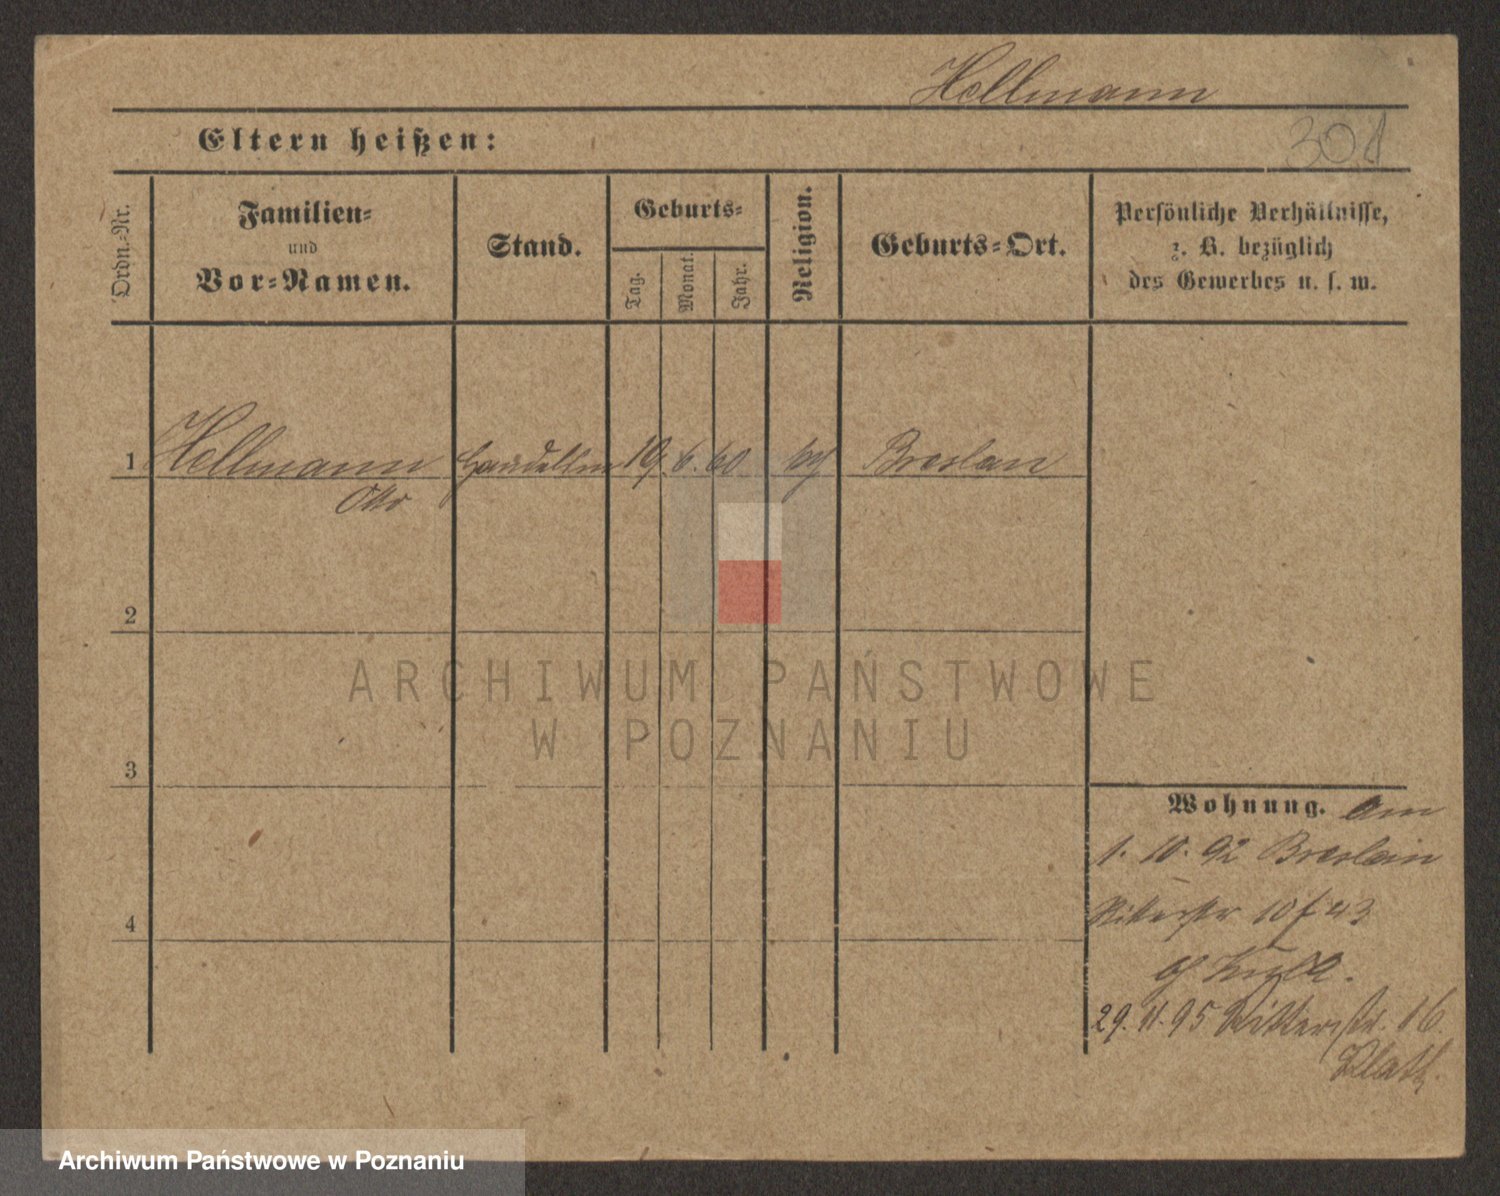 Hellmann
301
Eltern heißen:
Ordn.-Nr.
Familien-
und
Vor-Namen.
Stand.
Geburts-
Tag.
Monat.
Jahr.
Religion.
Geburts-Ort.
Persönliche Verhältnisse,
z. B. bezüglich
des Gewerbes u. s. w.
1 Hellmann 19. 6. 60 Breslau
Otto
2
3
4
Wohnung. Am
1. 10. 92 Breslau
Ritterstr 10
29. 11. 95 Ritterstr. 16.
Plath.
ARCHIWUM PAŃSTWOWE
W POZNANIU
Archiwum Państwowe w Poznaniu